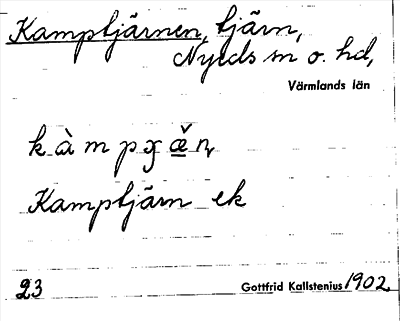 Kamptjärnen, tjärn,
Nyeds sn o. hd,
Värmlands län
k à m p
Kamptjärn ek
23 Gottfrid Kallstenius 1902